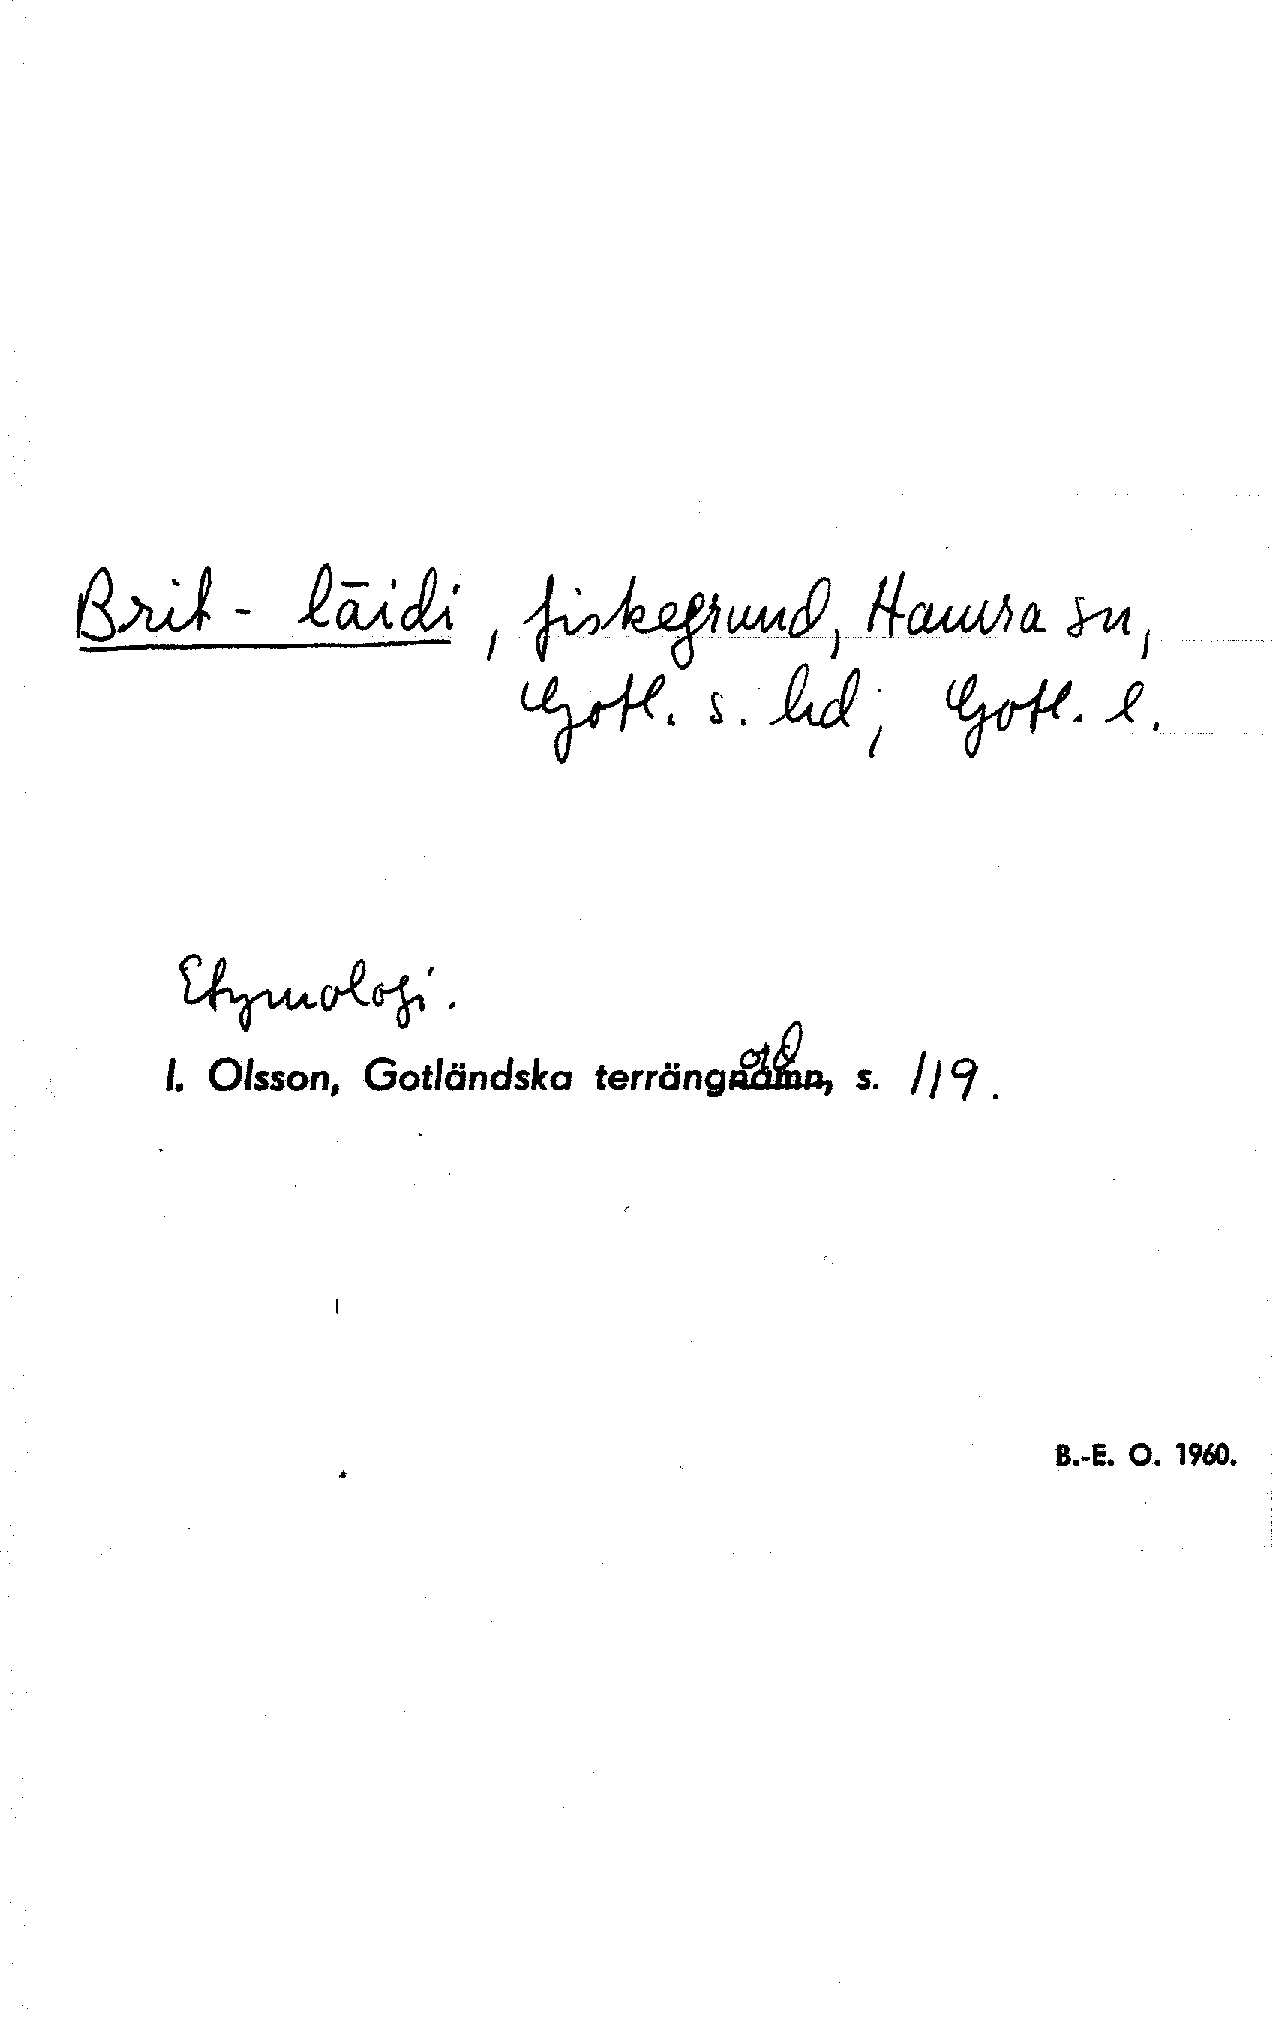 Brit- lāidi, fiskegrund, Hamra sn,
Gotl. s. hd; Gotl. l.
Etymologi.
I. Olsson, Gotländska terrängord, s. 119.
B.-E. O. 1960.